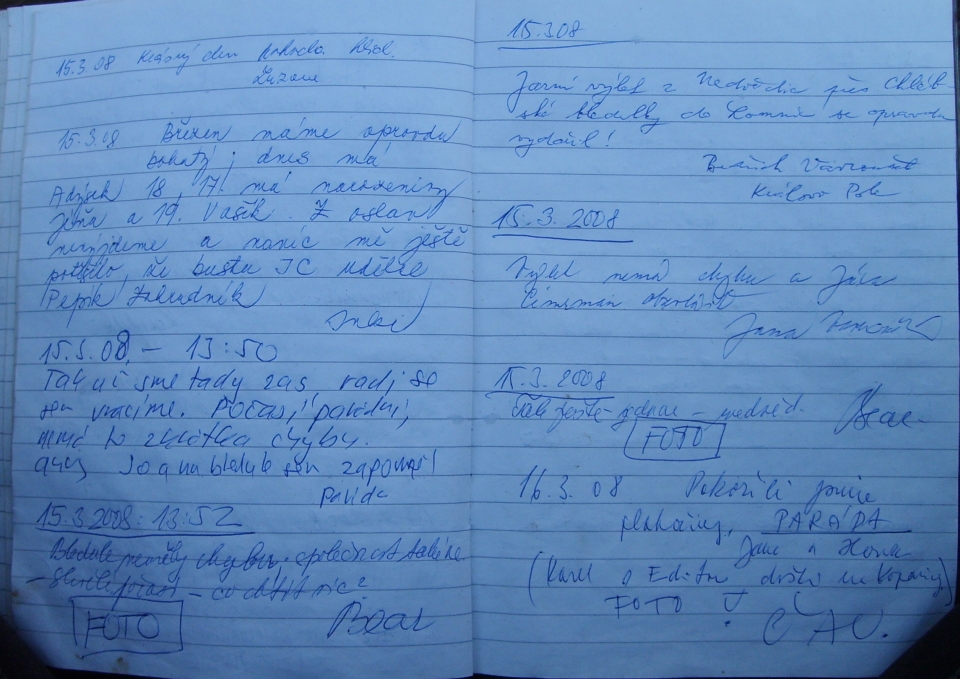 15.3.08 Krásný den pohoda
Zuzana
15.3.08 Březen máme opravdu
bohatý, dnes má
Adýsek 18, 17. má narozeniny
Jiřka a 19. Vašík. Z oslav
nevyjdeme a navíc mě ještě
potěšilo, že bustu JC udělal
Pepík Zahradník
15.3.08. – 13:50
Tak už sme tady zas, radi se
sem vracíme. Počasí parádní,
nemá to zkrátka chyby.
Jo a na bledule sem zapomněl
Pavlda
15.3.2008: 13:52
Bledule neměly chybu, společnost také ne
– Skvělé počasí – co chtít víc?
FOTO
Bear
15.3.08
Jarní výlet z Nedvědic přes Chléb-
ské bledulky do Lomnice se opravdu
vydařil!
Královo Pole
15.3.2008
Výlet nemá chybu a Jára
Cimrman obzvlášť
Jana
15.3.2008
ještě jednou – medvěd.
Bear
FOTO
16.3.08 Pokořili jsme
PARÁDA
Jana a Ilona
(Karel a Edita drželi na Kopaniny)
FOTO !
ČAU.